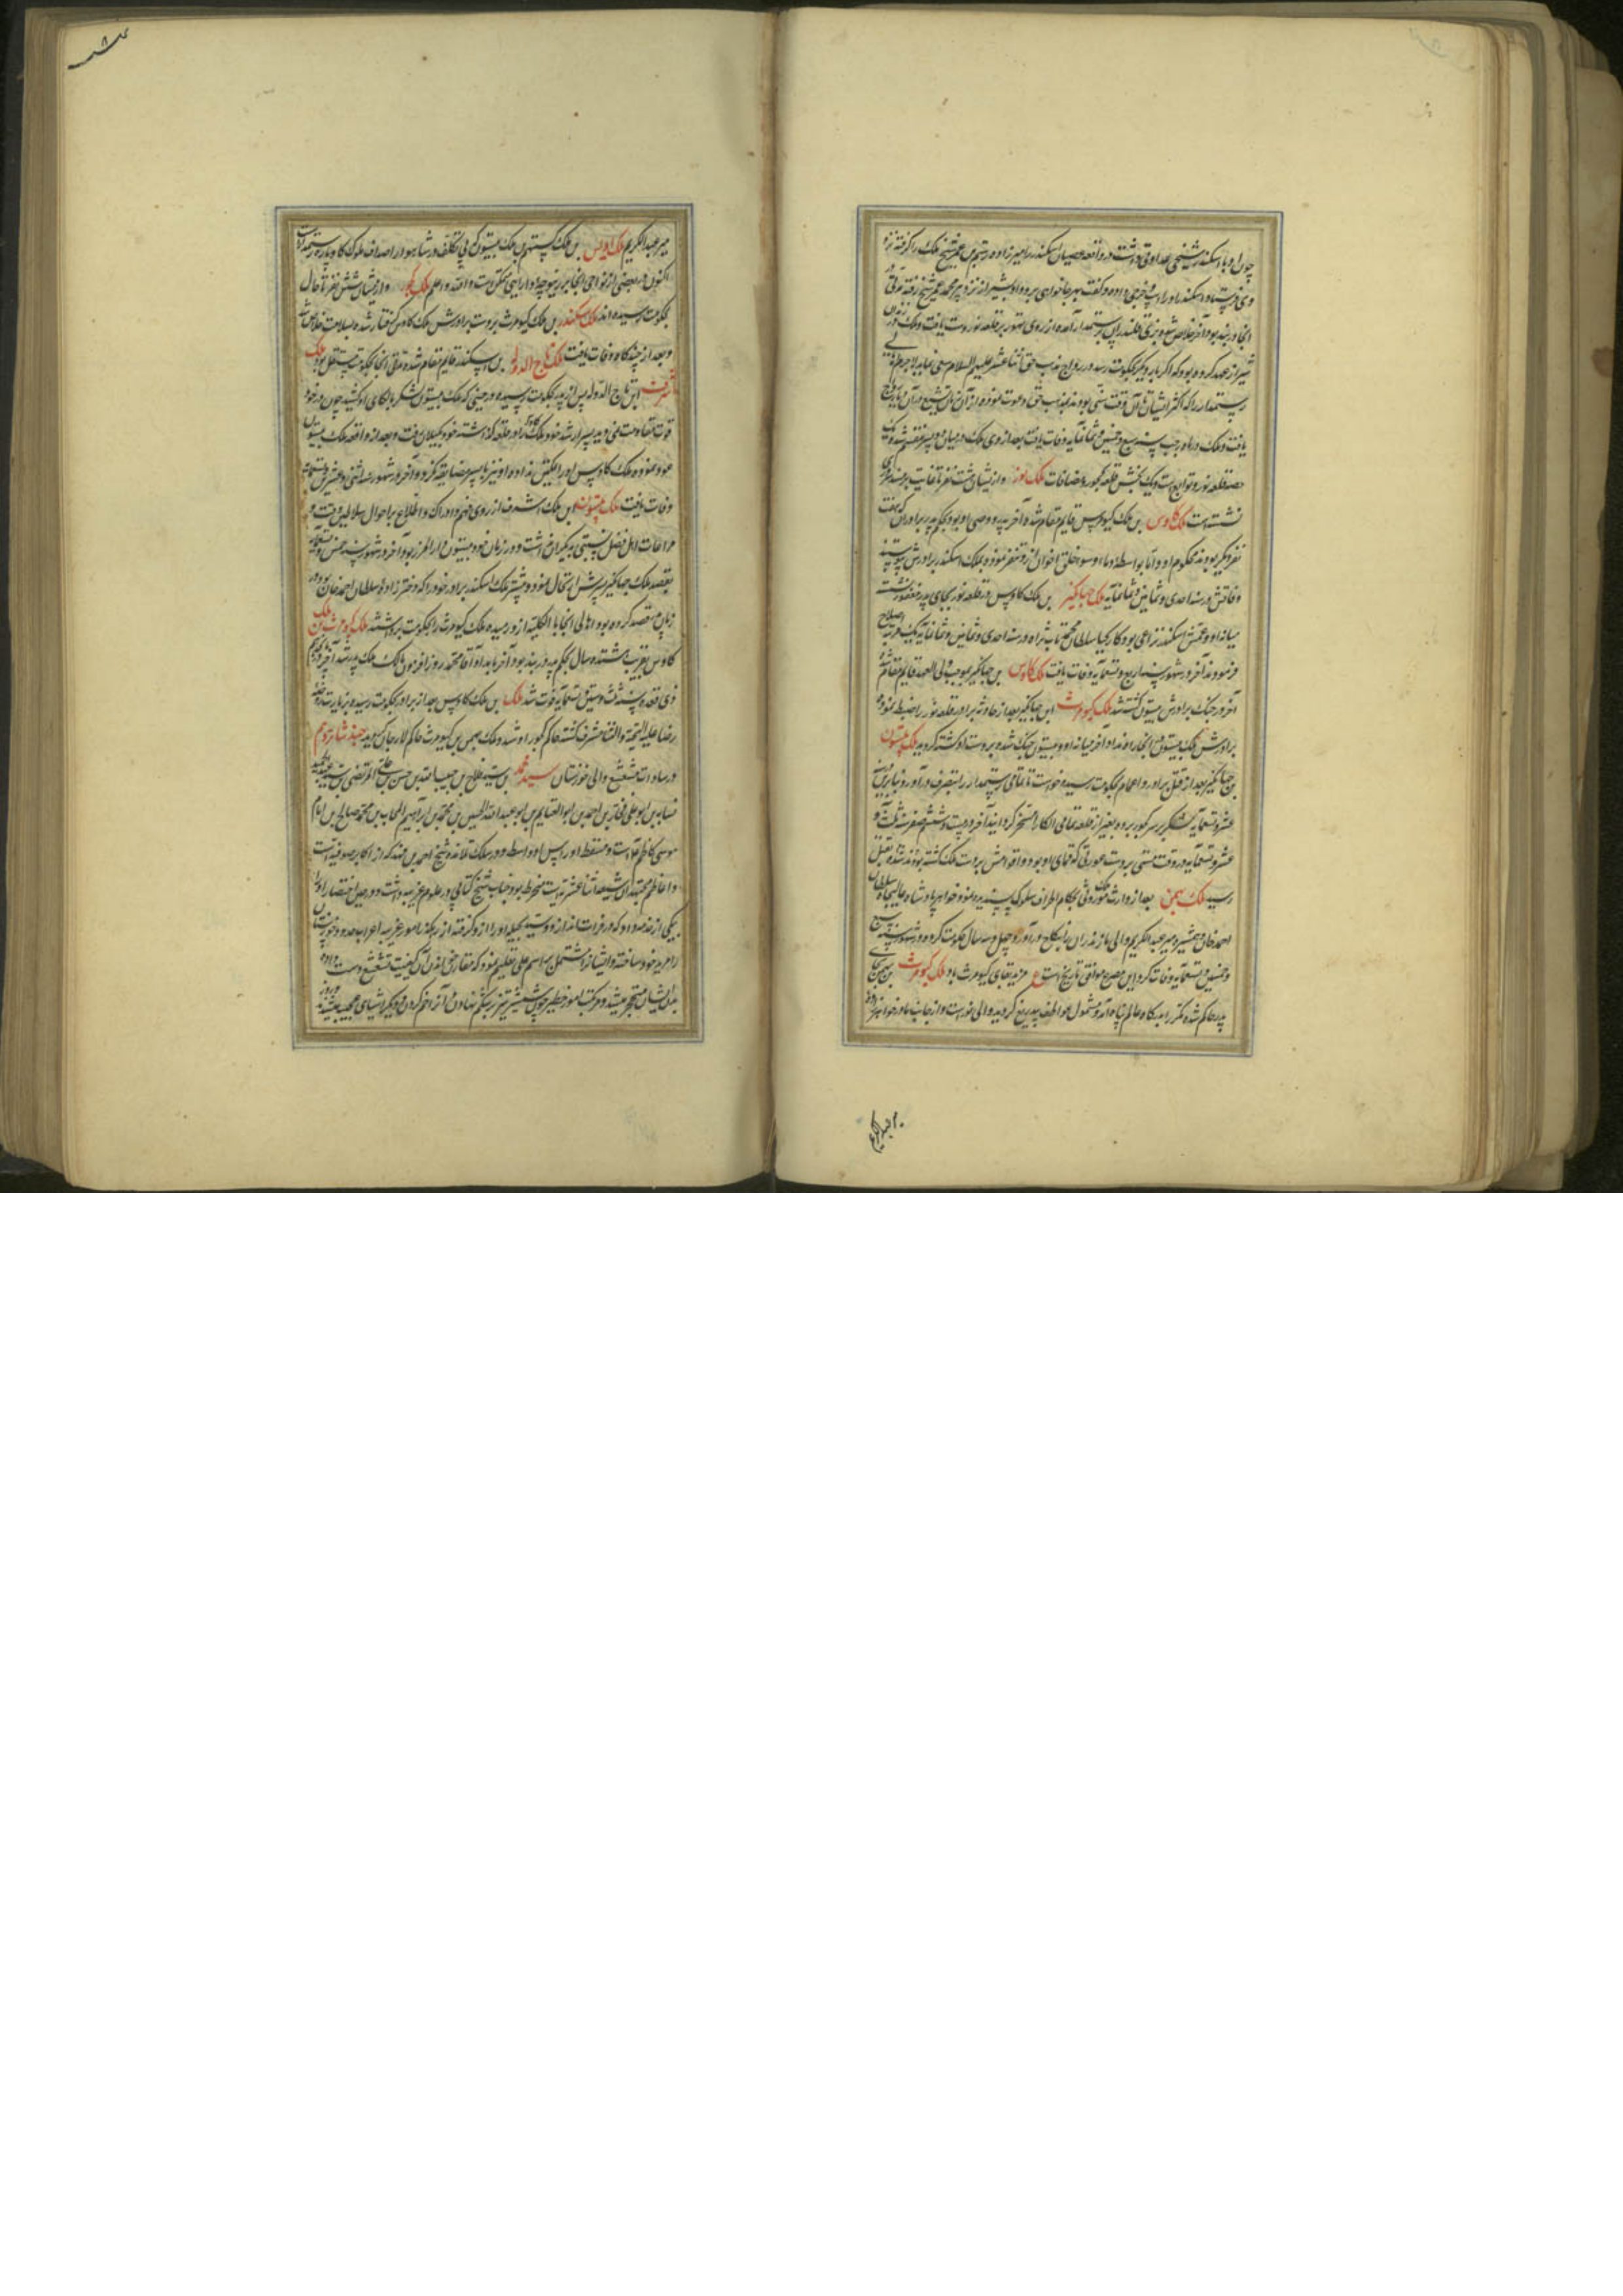 چون او را با اسکندر شیخی عداوتی داشت در واقعه عصیان اسکندر را میرزاده رستم بن عمر شیخ ملک را گرفته نزد
وی فرستاد و اسکندر او را اسب و خرجی داده و گفت بهر جا خواهی برو و او بشیراز نزد پیر محمد عمر شیخ رفته مدتی
آنجا در بند بود آخر خلاص شد و بزی قلندران برستمدار آمده از روی تهور بر قلعه نور دست یافت و ملک در زندان
شیراز عهد کرده بود که اگر بار دیگر بحکومت رسد در رواج مذهب حق اثنا عشر علیهم السلام سعی نماید لاجرم
رستمدار را که اکثر ایشان تا آن وقت سنی بودند بمذهب حق دعوت نموده از آن زمان تشیع در آن دیار رواج
یافت و ملک در ماه رجب سنه سبع و خمسین و ثمانمایه وفات یافت بعد از وی ملک در میان دو پسر منقسم شد یک
حصه قلعه نور و توابع است و یک بخش قلعه کجور و مضافات ملک نور و از ایشان هشت نفر تا غایت بر مسند
نشسته است ملک کاوس بن ملک کیومرث قایم مقام شد و آخر پدر و وصی او بود و بحکم پدر برادران که هفت
نفر دیگر بودند محکوم او و اما بواسطه دماء و سوء خلق اخوان ازو متنفر نموده بملک اسکندر برادرش پیوستند
وفاتش در سنه احدی و ثمانین و ثمانمایه ملک جهانگیر بن ملک کاوس در قلعه نور بجای پدر مغفور نشست
میانه او و عمش اسکندر نزاعی بود و کارکیا سلطان محمد در سنه احدی و ثمانین و ثمانمایه یک مرتبه اصلاح
فرمودند آخر در شهور سنه اربع و تسعمایه وفات یافت ملک کاوس بن جهانگیر بموجب ولی العهد قایم مقام شد
آخر در جنگ برادرش بیستون کشته شد ملک کیومرث ابن جهانگیر بعد از حادثه برادر قلعه نور را ضبط نموده
برادرش ملک بیستون آنجا راه نداد آخر میانه او و بیستون جنگ شده بر دست او کشته گردید ملک بیستون
بن جهانگیر بعد از قتل برادر و اعمام بحکومت رسیده خواست تا تمامی رستمدار را بتصرف درآورد بنابرین در
عشر و تسعمایه لشکر بر سر کجور برده بغیر از قلعه تمامی الکا را مسخر گردانید آخر در بیست و ششم صفر سنه ثلث و
عشر و تسعمایه در وقت مستی بر دست عورتی که بود و اقوامش بر دست ملک کشته بودند بقتل
رسید ملک بهمن بعد از وارث ملک موروثی بحکام اطراف سلوک پسندیده نمود خواهر پادشاه عالیجاه سلطان
احمد خان و همشیره میر عبدالکریم والی مازندران را بنکاح درآورد و چهل و سه سال حکومت کرد و در شهور سنه سبع
و خمسین و تسعمایه وفات کرد این مصرع موافق تاریخ است ع مزید بقای کیومرث باد ملک کیومرث بن بهمن بجای
پدر حاکم شده مکرر بدرگاه عالم پناه آمد و مشمول عواطف بیدریغ گردید و الی خود است و از جانب مادر خواهرزاده
میر عبدالکریم
میر عبدالکریم ملک اویس بن ملک گستهم بن ملک بیستون که بی تکلف در شاهوار اصداف ملوک کاوپاره و رستمدار است
اکنون در بعضی از نواحی آنجا بر زمینچه و دارایی متمکن است والله اعلم ملک کجور و از ایشان شش نفر تا حال
بحکومت رسیده اند ملک اسکندر بن ملک کیومرث بر دست برادرش ملک کاوس گرفتار شده خلاص شد
و بعد از چند گاه وفات یافت ملک تاج الدوله بن اسکندر قایم مقام شد و مدتی آنجا بحکومت مستقل بود ملک
اشرف ابن تاج الدوله پس از پدر بحکومت رسیده در حینی که ملک بیستون لشکر بالکای او کشید چون در خود
قوت مقاومت نمی دید پسر ارشد خود ملک کاوس را در قلعه گذاشته خود بگیلان رفت و بعد از واقعه ملک بیستون
عود نموده ملک کاوس او را بملک نداد و او نیز با پسر مضایقه نکرد و آخر در شهور سنه اثنی و عشرین و تسعمایه
وفات یافت ملک بیستون ابن ملک اشرف از روی فهم و ادراک و اطلاع بر احوال سلاطین وقت و
مراعات اهل فضل نسبتی بدیگران نداشت و در زمان خود بیستون دار المرز بود آخر در شهور سنه خمس و تسعمایه
بقصد ملک جهانگیر پسرش ارتحال نمود و پیشتر ملک اسکندر برادر خود را که دختر زاده سلطان احمد خان بود در
زمان قصد کرده بود اهالی آنجا بالکلیه ازو رمیده ملک کیومرث را بحکومت برداشتند ملک کیومرث بن ملک
کاوس بقریب هشتده سال بحکم پدر در بند بود آخر بامداد آقا محمد روزافزون مالک ملک پدر شد آخر در
ذی قعده سنه ستین و تسعمایه فوت شد ملک بن ملک کاوس بعد از برادر بحکومت رسیده بزیارت روضه
رضا علیه التحیة والثنا مشرف گشته حاکم کجور او شد و ملک بهمن بن کیومرث حاکم لارجان گردید صحیفه شانزدهم
در سادات مشعشع والی خوزستان سید محمد بن سید فلاح بن هیبت الله بن حسن بن علی المرتضی بن سید عبدالحمید
نسابه بن ابو علی فخار بن احمد بن ابو الغنایم بن ابو عبدالله الحسین بن محمد بن ابراهیم المجاب بن محمد صالح بن امام
موسی کاظم علیه السلام است و مسقط الراس او واسط و در سلک تلامذه شیخ احمد بن فهد که از اکابر صوفیه است
و اعاظم مجتهدان شیعه اثنا عشریه است منخرط بود جناب شیخ کتابی در علوم غریبه داشت و در حین احتضار او را
بیکی از خدمه داد که در فرات اندازد و سید بحیله او را ازو گرفته از رهگذر امور غریبه اعراب حدود خوزستان
را مرید خود ساخته و ایشانرا مشتمل بر اسم علی تعلیم نمود که مقارن خواندن آن کیفیت تشعشع دست داده
بدن ایشان متحجر میشد و مرتکب امور خطیر چون شمشیر تیز بر شکم نهادن و آنرا خم کردن و دیگر اشیای عجیبه میشدند و روز